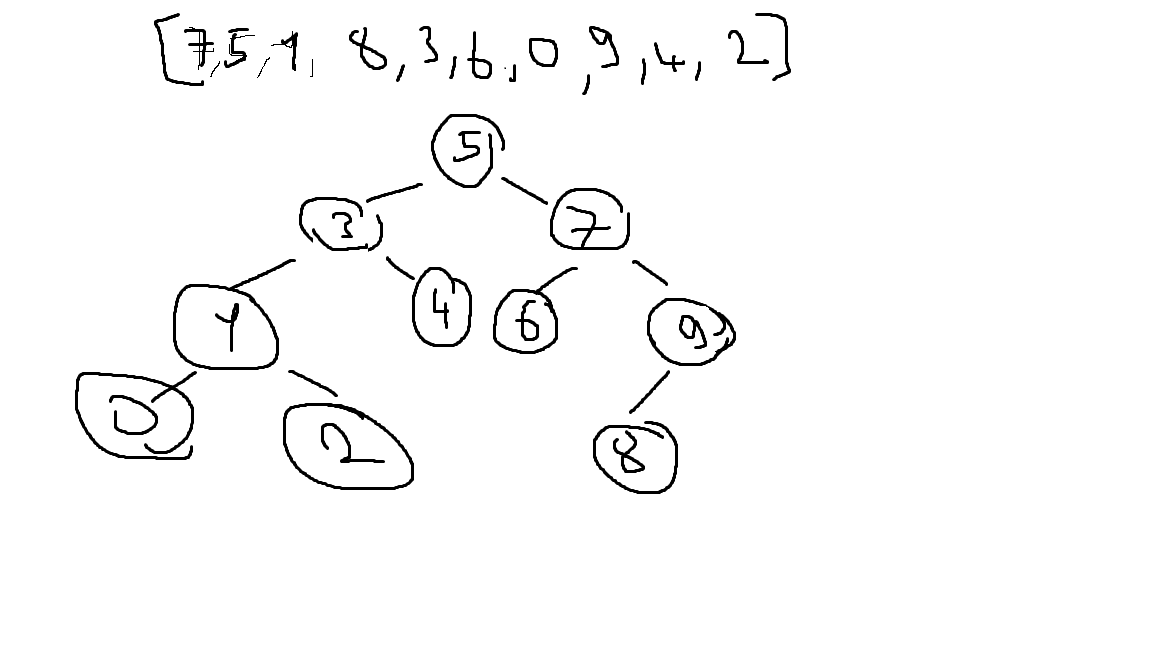 [7,5,1,8,3,6,0,9,4,2]
5
3 7
1 4 6 9
0 2 8